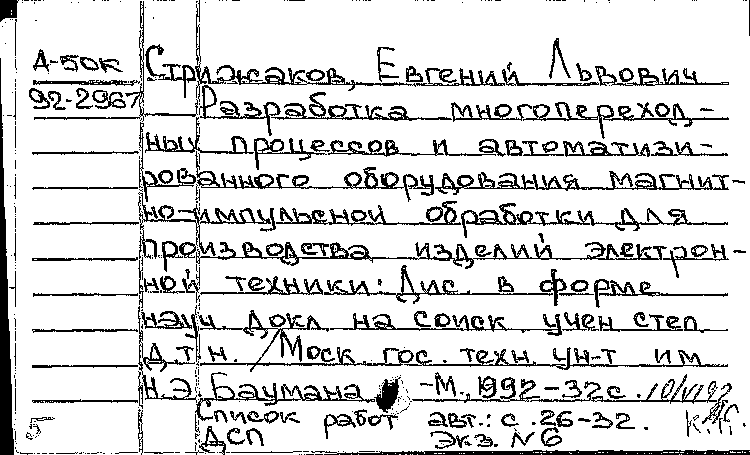 А-50к Стрижаков, Евгений Львович
92-2967 Разработка многопереход-
ных процессов и автоматизи-
рованного оборудования магнит-
но-импульсной обработки для
производства изделий электрон-
ной техники: Дис. в форме
науч. докл. на соиск. учен степ.
д.т.н. / Моск. гос. техн. ун-т им
Н.Э. Баумана -М., 1992-32с.
Список работ авт.: с. 26-32.
5 ДСП Экз. N6